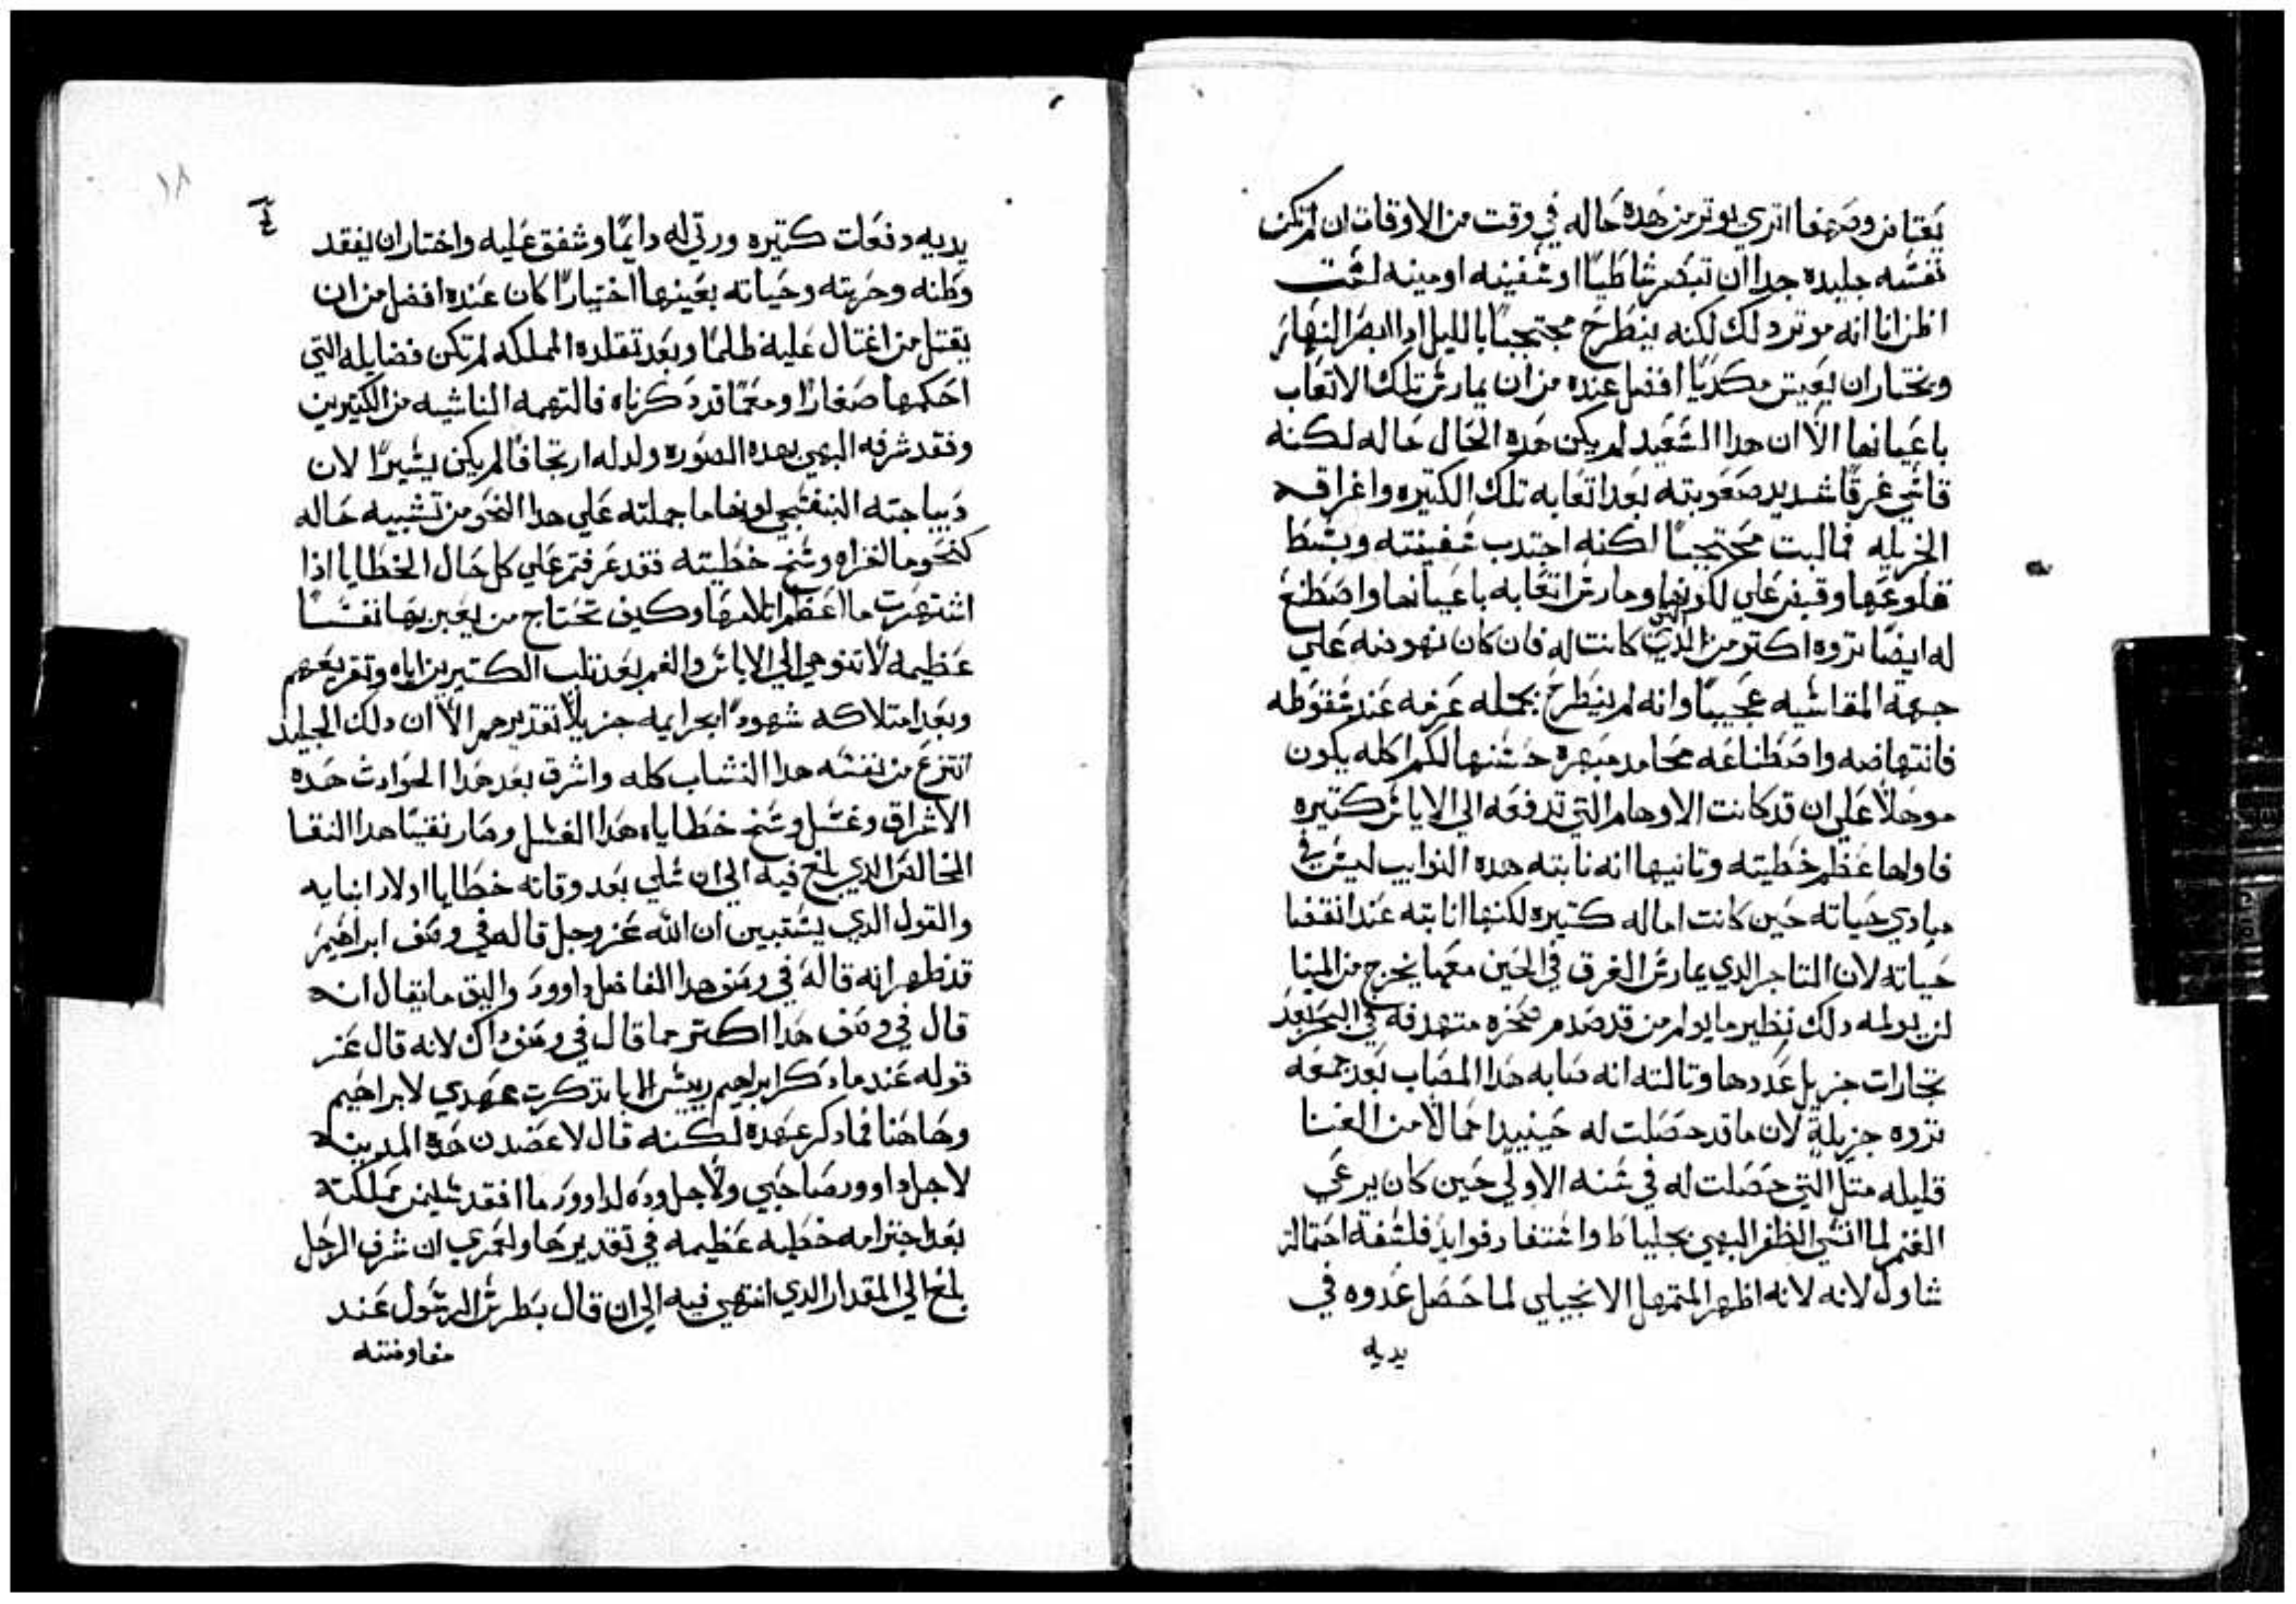 يعتاض وصفها اتري يوتر من هده حاله في وقت من الاوقات ان لم تكن
نفسه جليده جدا ان تبصر شاطيا او سفينه او مينه لست
اظن انا انه موتر دلك لكنه ينطرح محتجبا بالليل ادا ابصر النهار
ويختار ان يعيش مكديا افضل عنده من ان يمارس تلك الاتعاب
باعيانها الا ان هدا السعيد لم يكن هده الحال حاله لكنه
قاسي غرقا شديد صعوبته بعد اتعابه تلك الكتيره واغراقه
الجزيله فما لبت محتجبا لكنه اجتدب سفينته وبسط
قلوعها وقبض علي لكونها ومارس اتعابه باعيانها واصطنع
له ايضا تروه اكتر من التي كانت له فان كان نهوضه علي
جهة المقاسيه عجيبا وانه لم ينطرح بجملة عزمه عند سقوطه
فانتهاضه واصطناعه محامد مبهره حسنها لكم اكله يكون
موهلا علي ان قد كانت الاوهام التي تدفعه الي الاياس كتيره
فاولها عظم خطيته وتانيها انه نابته هده النوايب ليس في
مبادي حياته حين كانت اماله كتيره لكنها انابته عند انقضا
حياته لان التاجر الدي يمارس الغرق في الحين معما يخرج من المينا
لن يولمه دلك نظير ما يولم من قد صدم صخره متهدفه في البحر بعد
تجارات جزيل عددها وتالته انه صابه هدا المصاب بعد جمعه
تروه جزيلة لان ما قد حصلت له حينيدا حمالا من الغنا
قليله متل التي حصلت له في سنه الاولي حين كان يرعي
الغنم لما انشي الظفر البهي بجلياط واستفاد فوايد فلسفة احتماله
شاول لانه لانه اظهر المتمهل الانجيلي لما حصل عدوه في
يديه
١٨
يديه دفعات كتيره ورتي له دايما وشفق عليه واختار ان يفقد
وطنه وحريته وحياته بعينها اختيارا كان عنده افضل من ان
يقتل من اغتال عليه ظلما وبعد تقلده المملكه لم تكن فضايله التي
احكمها صغارا ومعما قد دكرناه فالتهمه الناشيه من الكتيرين
وفقد شرفه البهي بهده الصوره ولد له ارتجافا لم يكن يسيرا لان
ديباجته البنفسجي لونها ما جملته علي هدا النحو من تشبيه حاله
كنحو ما اخزاه وسخ خطيته فقد عرفتم علي كل حال الخطايا اذا
اشتهرت ما اعظم ايلامها وكيف تحتاج من يعير بها نفسا
عظيمه لا تنوهي الي الاياس والغم بعد تلب الكتيرين اياه وتقريعهم
وبعد امتلاكه شهودا بجرايمه جزيلا تقديرهم الا ان دلك الجليد
انتزع من نفسه هدا النشاب كله واشرق بعد هدا الحوادت هده
الاشراق وغسل وسخ خطاياه هدا الغسل وصار نقيا هدا النقا
الخالص الدي بلغ فيه الي ان سلي بعد وفاته خطايا اولاد ابنايه
والقول الدي يستبين ان الله عز وجل قاله في وصف ابراهيم
قد ظهر انه قاله في وصف هدا الفاضل داوود واليق ما يقال انه
قال في وصف هدا اكتر مما قال في وصف داك لانه قال عز
قوله عند ما دكر ابراهيم رييس الابا تدكرت عهدي لابراهيم
وهاهنا فما دكر عهده لكنه قال لاعضدن هده المدينه
لاجل داوود صاحبي ولاجل وده لداوود ما افقد سليمن مملكته
بعد اجترامه خطيه عظيمه في تقديرها ولعمري ان شرف الرجل
بلغ الي المقدار الدي انتهي فيه الي ان قال بطرس الرسول عند
مفاوضته